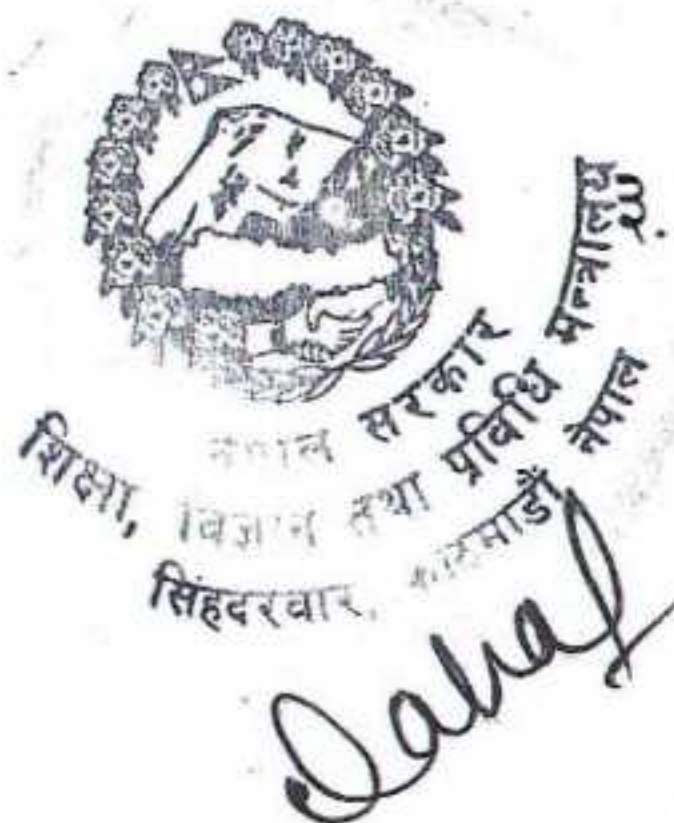 नेपाल सरकार
शिक्षा, विज्ञान तथा प्रविधि मन्त्रालय
सिंहदरवार, काठमाडौं नेपाल
Dahal